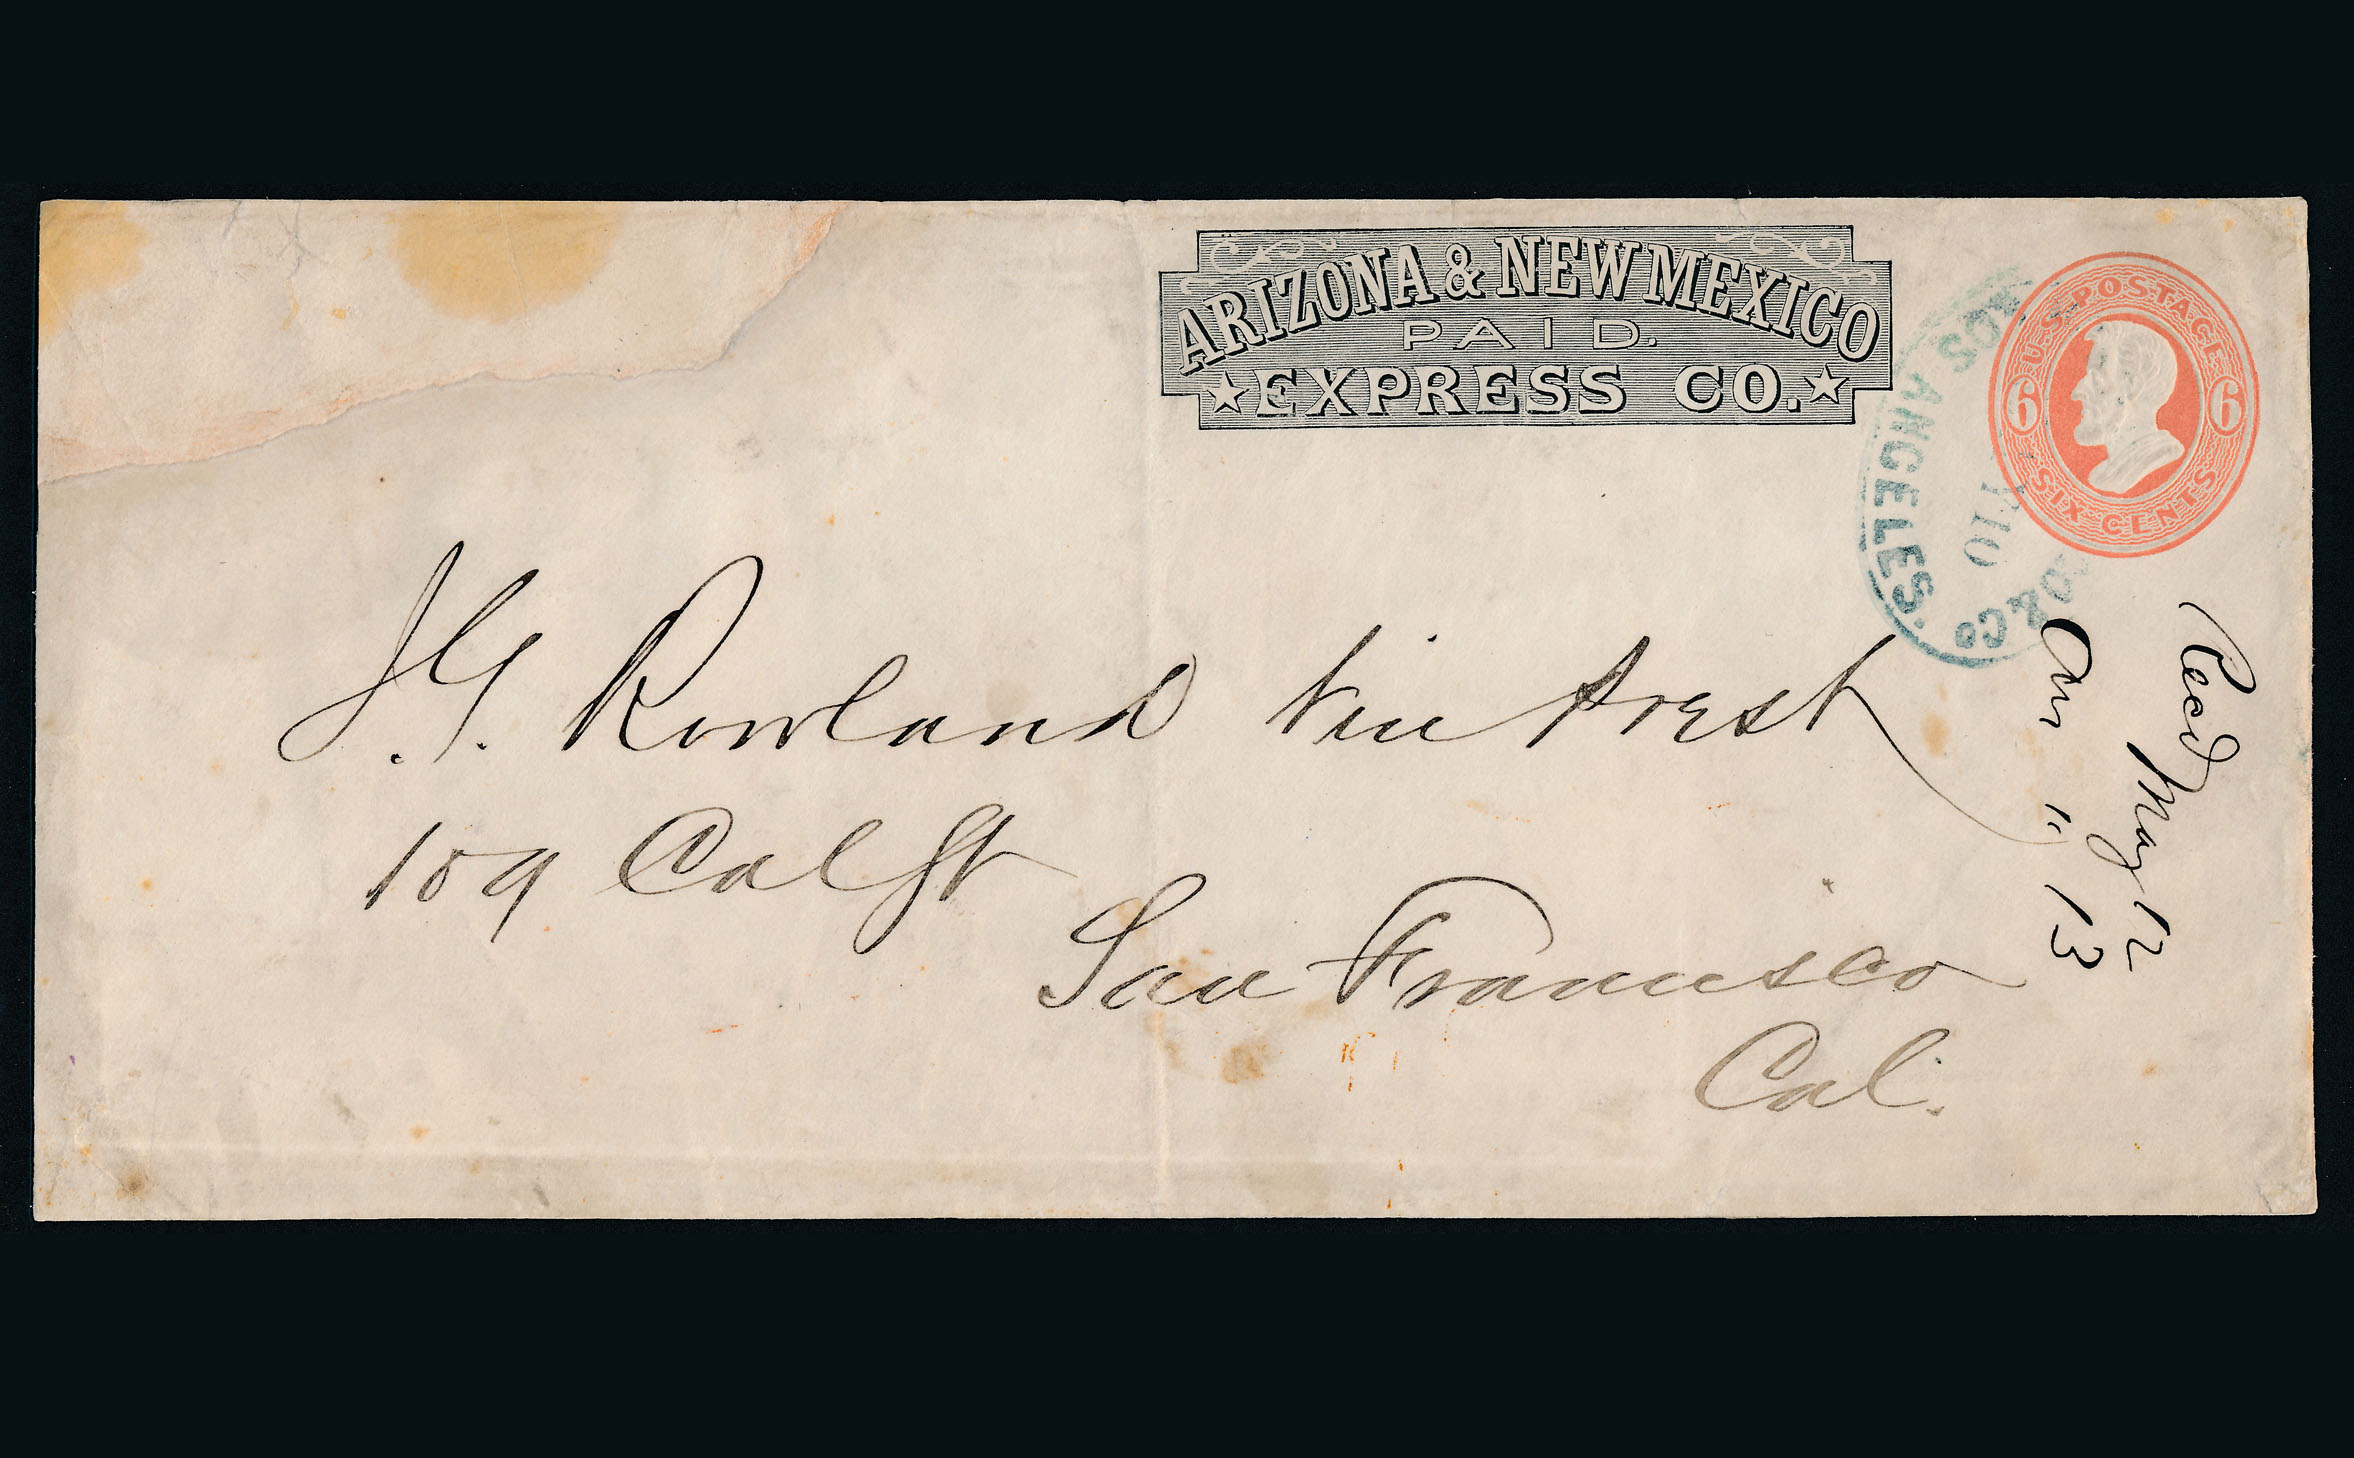 ARIZONA & NEW MEXICO
PAID.
★EXPRESS CO.★
U.S. POSTAGE
6 6
SIX CENTS
LOS ANGELES.
10
O & Co
J. G. Rowland Vice Prest
109 Cal St
San Francisco
Cal.
Recd May 12
" 13